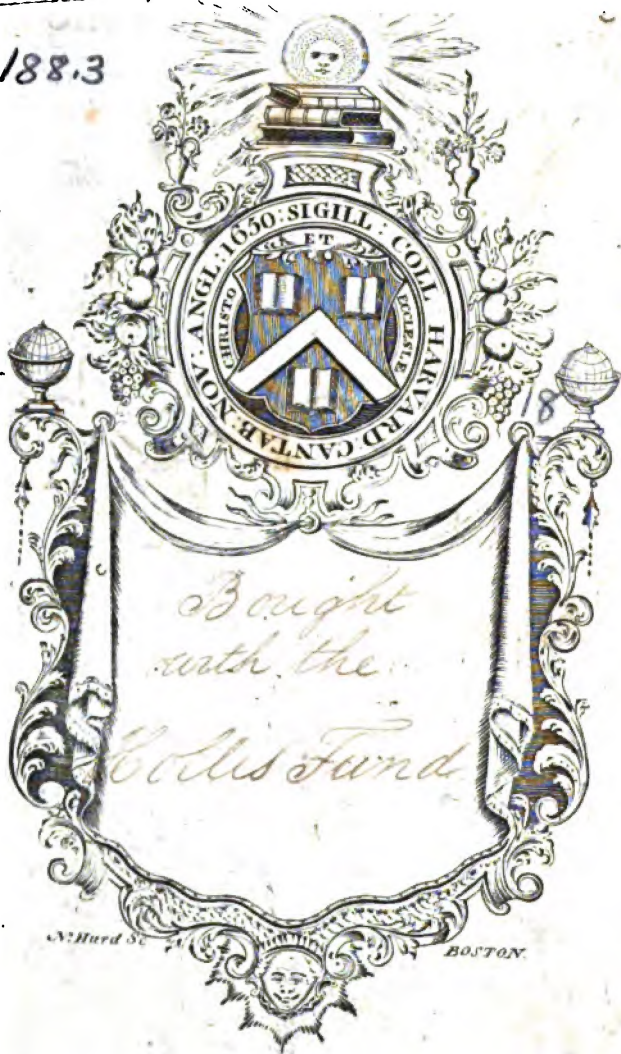 188.3
SIGILL : COLL HARVARD : CANTAB : NOV : ANGL : 1650 :
ET
CHRISTO
ECCLESIÆ
18
Bought
with the
Hollis Fund
N. Hurd Sc
BOSTON.